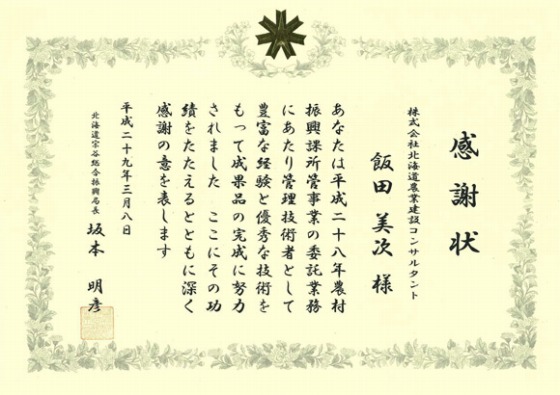 感謝状
株式会社北海道農業建設コンサルタント
飯田 美次 様
あなたは平成二十八年農村
振興課所管事業の委託業務
にあたり管理技術者として
豊富な経験と優秀な技術を
もって成果品の完成に努力
されました ここにその功
績をたたえるとともに深く
感謝の意を表します
平成二十九年三月八日
北海道宗谷総合振興局長 坂本 明彦